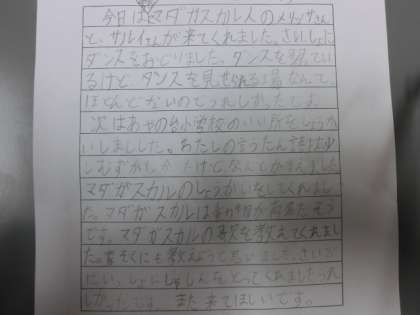 今日はマダガスカル人のメリッサさん
と、サルイさんが来てくれました。さいしょに
ダンスをおどりました。ダンスを習ってい
るけど、ダンスを見せられる場なんて、
ほとんどないのでうれしかったです。
次はあやの台小学校のいい所をしょうか
いしましした。わたしの言ったん
しむずかし たけどなんとか言えました
マダガスカルのしょうかいもしてくれまし
た。マダガスカルは 有名だそう
です。マダガスカルの歌を教えてくれまし
た。 にも教えようと思いました。さいご
に、いっしょにしゃしんをとってくれましたうれ
しかったです。また来てほしいです。